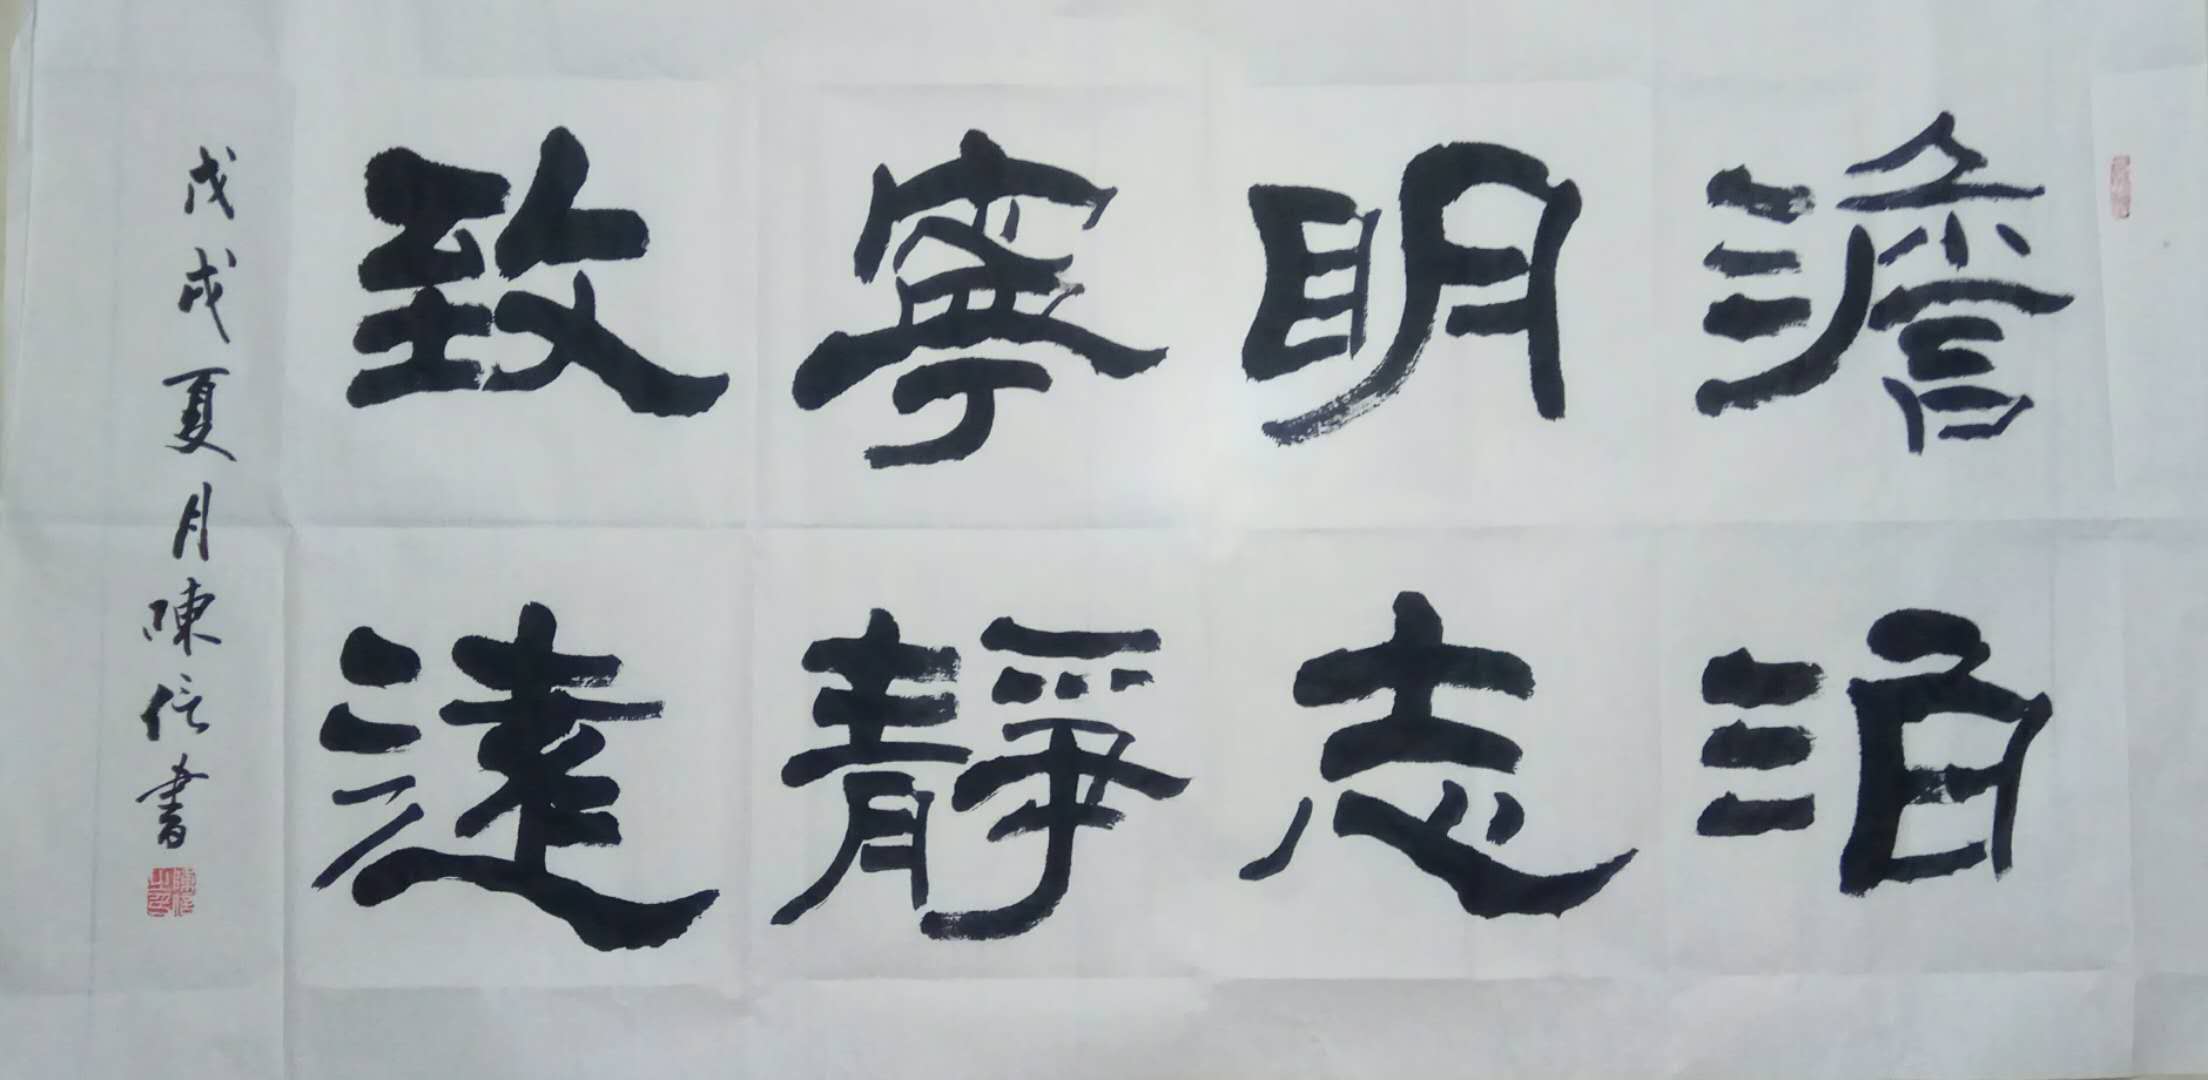 澹泊
明志
寧靜
致遠
戊戌夏月陳信書